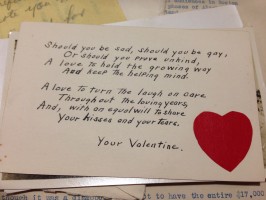 Should you be sad, should you be gay,
Or should you prove unkind,
A love to hold the growing way
And keep the helping mind.
A love to turn the laugh on care
Throughout the loving years,
And, with an equal will to share
Your kisses and your tears.
Your Valentine.
though it was a
to have the entire $17,000